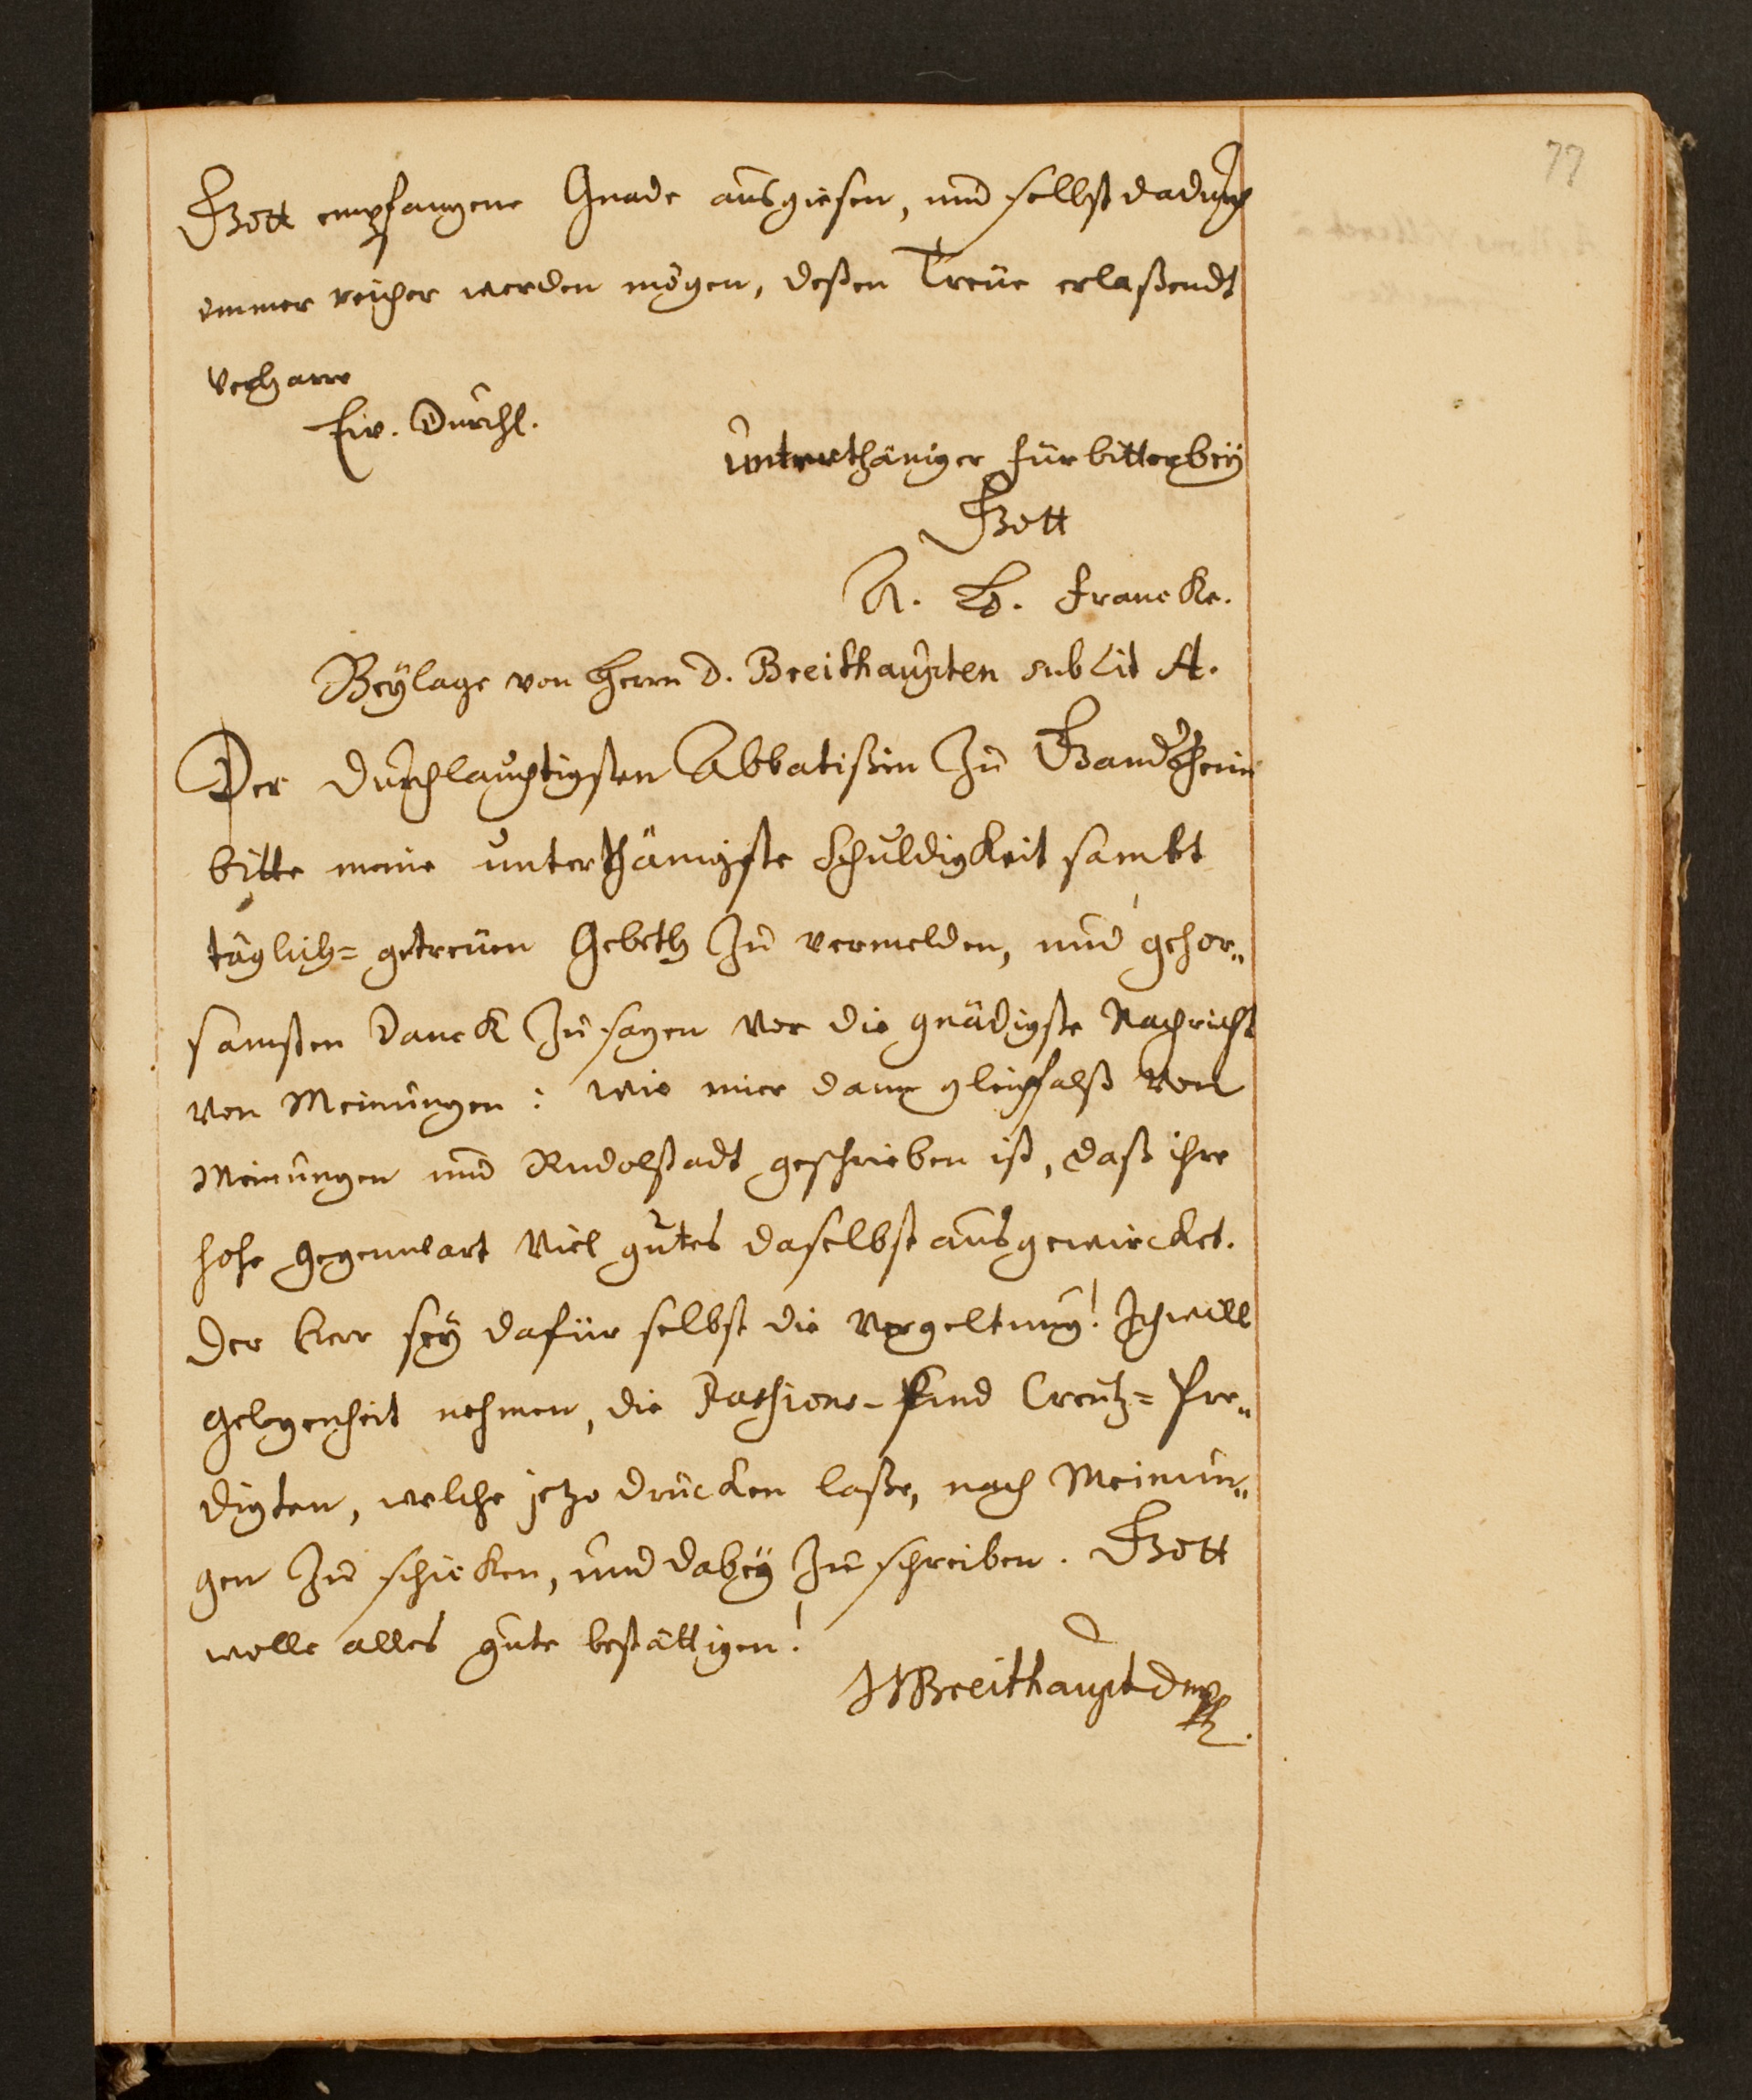 77
Gott empfangene Gnade ausgiesen, und selbst dadurch
immer reicher werden mögen, deßen Treüe erlaßendt
verharre
Ew. Durchl.
unterthäniger fürbitter bey
Gott
A. H. Francke.
Beÿlage von Herrn D. Breithaupten sub Lit A.
Der durchlauchtigsten Abbatißin zu Gandersheim
bitte meine unterthänigste Schuldigkeit sambt
täglich= getreuen Gebeth zu vermelden, und gehor„
samsten Danck zu sagen vor die gnädigste Nachricht
von Meinungen: wie mier dann gleichfalß von
Meinungen und Rudolstadt geschrieben ist, daß ihre
hohe gegenwart viel gutes daselbst ausgewircket.
Der Herr seÿ dafür selbst die Vergeltung! Ich will
gelegenheit nehmen, die Passions- und Creutz= Pre„
digten, welche jetzo drucken laße, nach Meinun„
gen zu schicken, und dabeÿ zu schreiben. Gott
wolle alles gute bestättigen!
JJBreithaupt D